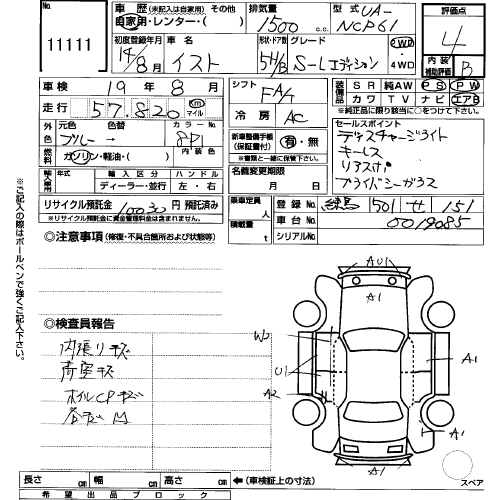 No. 11111
車歴(※記入は自家用) その他
自家用・レンター・( )
排気量 1500 cc
型式 UA-
NCP61
評価点 4
初度登録年月 14年 8月
車名 イスト
形状・ドア数 5H/B
グレード S-Lエディション
2WD・4WD
内装補助評価 B
車検 19年 8月
シフト FA/T
装備品 SR 純AW PS PW
カワ TV ナビ エアB
※純正品に限り該当に○をつけて下さい。
走行 57,820 Km マイル
冷房 AC
外色 元色 色替 カラーNo.
ブルー → 8P1
新車整備手帳(保証書付) 有・無
※書類と一緒に保管して下さい。
セールスポイント
ディスチャージライト
キーレス
リアスポ
プライバシーガラス
燃料 ガソリン・軽油・( ) 内装色
輸入車用 年式 輸入区分 ハンドル
ディーラー・並行 左・右
名義変更期限 月 日
リサイクル預託金 10030円 預託済み
※リサイクル預託金に資金管理料金は含まれません。
乗車定員 人
積載量 t
登録No. 練馬 501 せ 151
車台No. 0019085
シリアルNo.
◎注意事項 (修復・不具合箇所および状態等)
※ご記入の際はボールペンで強くご記入下さい。
◎検査員報告
内張りキズ
荷室キズ
ホイルCPキズ
AU1
A1
W2
U1
A2
A1
A1
A1
スペア
長さ cm 幅 cm 高さ cm ←(車検証上の寸法)
希望出品ブロック